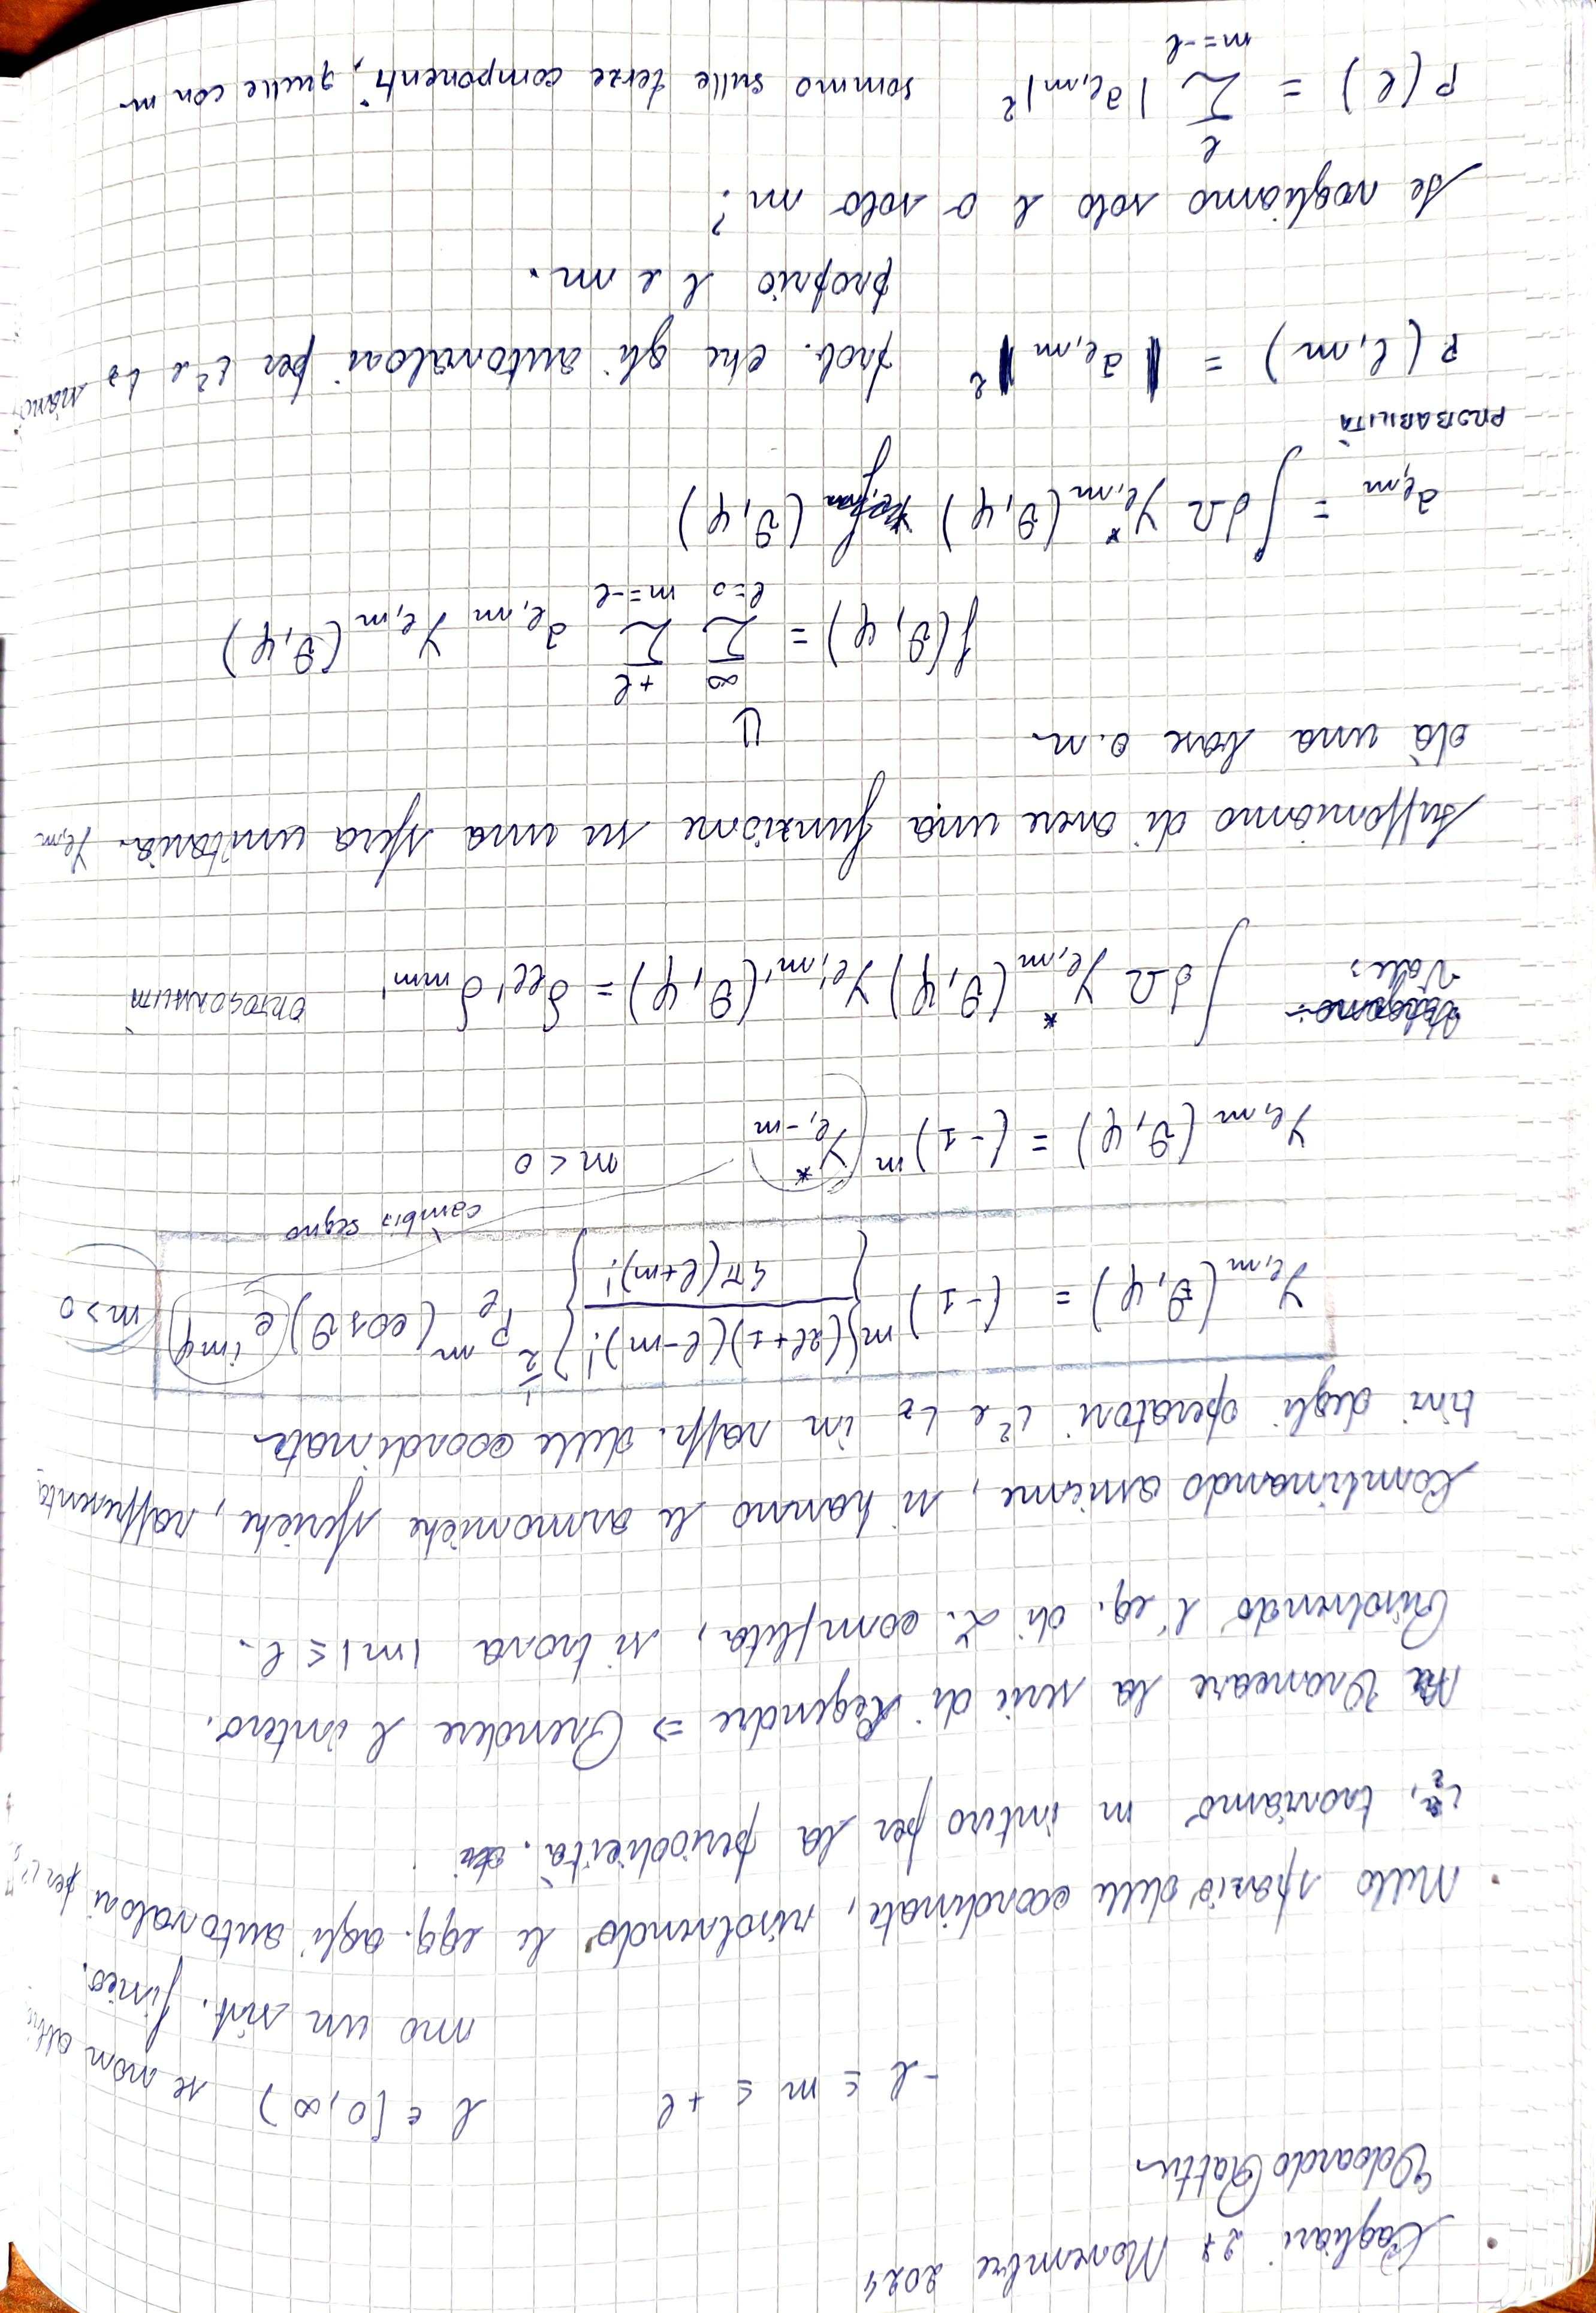 Cagliari 27 Novembre 2024
Edoardo Rattu
-l ≤ m ≤ +l    l ∈ [0,∞) se non abbia
mo un sist. fisico.
Nello spazio delle coordinate, risolvendo le eqq. agli autovalori per L²,
L_z, troviamo m intero per la periodicità.
Troncare la serie di Legendre ⇒ Prendere l intero.
Risolvendo l'eq. di L. completa, si trova |m| ≤ l.
Combinando assieme, si hanno le armoniche sferiche, rappresenta
tivi degli operatori L² e L_z in rapp. delle coordinate
Y_{l,m}(θ,φ) = (-1)^m {(2l+1)(l-m)! / 4π(l+m)!}^{1/2} P_l^m (cosθ) e^{imφ} m>0
cambia segno
Y_{l,m}(θ,φ) = (-1)^m Y*_{l,-m}    m<0
Vale: ∫dΩ Y*_{l,m}(θ,φ) Y_{l',m'}(θ,φ) = δ_{ll'} δ_{mm'} ORTOGONALITÀ
Supponiamo di avere una funzione su una sfera unitaria. Y_{l,m}
dà una base o.n.
⇓
f(θ,φ) = Σ_{l=0}^{∞} Σ_{m=-l}^{+l} a_{l,m} Y_{l,m}(θ,φ)
a_{l,m} = ∫dΩ Y*_{l,m}(θ,φ) f(θ,φ)
PROBABILITÀ
P(l,m) = |a_{l,m}|² prob. che gli autovalori per L² e L_z siano
proprio l e m.
Se vogliamo solo l o solo m?
P(l) = Σ_{m=-l}^{l} |a_{l,m}|² sommo sulle terze componenti, quelle con m